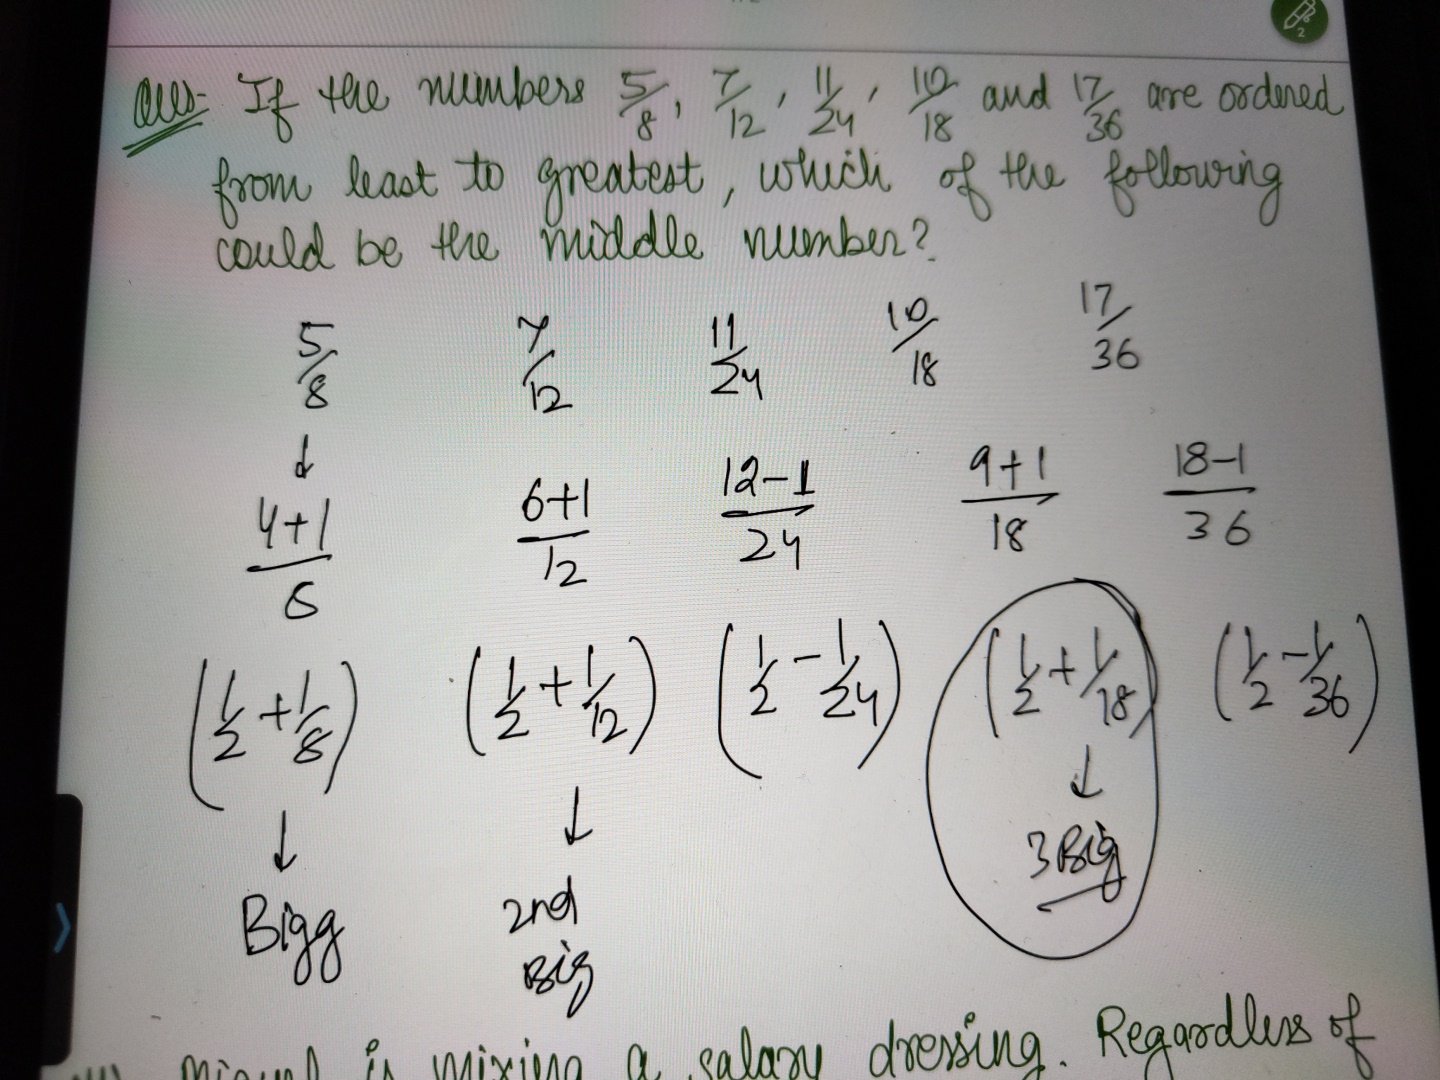 Ques- If the numbers 5/8, 7/12, 11/24, 10/18 and 17/36 are ordered
from least to greatest, which of the following
could be the middle number?
5/8 7/12 11/24 10/18 17/36
↓
4+1/8 6+1/12 12-1/24 9+1/18 18-1/36
(1/2+1/8) (1/2+1/12) (1/2-1/24) (1/2+1/18) (1/2-1/36)
↓ ↓ ↓
Bigg 2nd Big 3 Big
is mixing a salary dressing. Regardless of
2